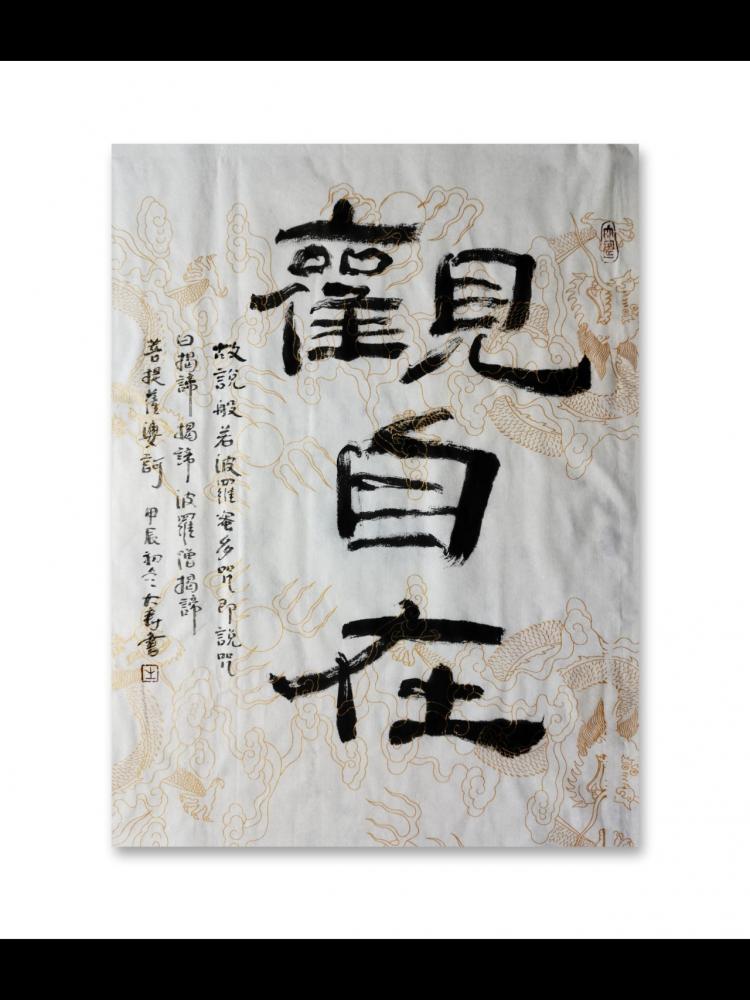 觀自在
故說般若波羅蜜多咒即說咒
曰揭諦揭諦波羅僧揭諦
菩提薩婆訶甲辰初冬大壽書